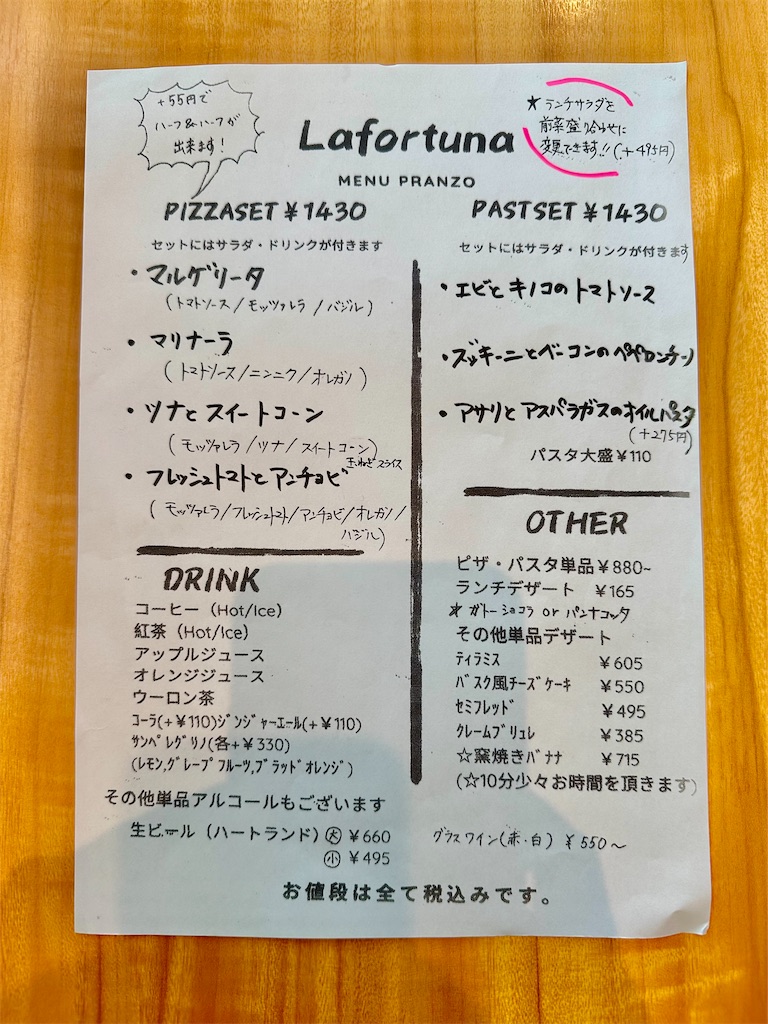 +55円で
ハーフ&ハーフが
出来ます!
Lafortuna
MENU PRANZO
★ランチサラダを
前菜盛り合わせに
変更できます!!(+495円)
PIZZASET ¥1430
セットにはサラダ・ドリンクが付きます
・マルゲリータ
(トマトソース/モッツァレラ/バジル)
・マリナーラ
(トマトソース/ニンニク/オレガノ)
・ツナとスイートコーン
(モッツァレラ/ツナ/スイートコーン)
玉ねぎスライス
・フレッシュトマトとアンチョビ
(モッツァレラ/フレッシュトマト/アンチョビ/オレガノ/
バジル)
DRINK
コーヒー(Hot/Ice)
紅茶(Hot/Ice)
アップルジュース
オレンジジュース
ウーロン茶
コーラ(+¥110)ジンジャーエール(+¥110)
サンペレグリノ(各+¥330)
(レモン,グレープフルーツ,ブラッドオレンジ)
その他単品アルコールもございます
生ビール(ハートランド)㊅ ¥660
㊀ ¥495
PASTSET ¥1430
セットにはサラダ・ドリンクが付きます
・エビとキノコのトマトソース
・ズッキーニとベーコンのペペロンチーノ
・アサリとアスパラガスのオイルパスタ
(+275円)
パスタ大盛¥110
OTHER
ピザ・パスタ単品¥880~
ランチデザート ¥165
★ガトーショコラ or パンナコッタ
その他単品デザート
ティラミス ¥605
バスク風チーズケーキ ¥550
セミフレッド ¥495
クレームブリュレ ¥385
☆窯焼きバナナ ¥715
(☆10分少々お時間を頂きます)
グラスワイン(赤・白) ¥550~
お値段は全て税込みです。